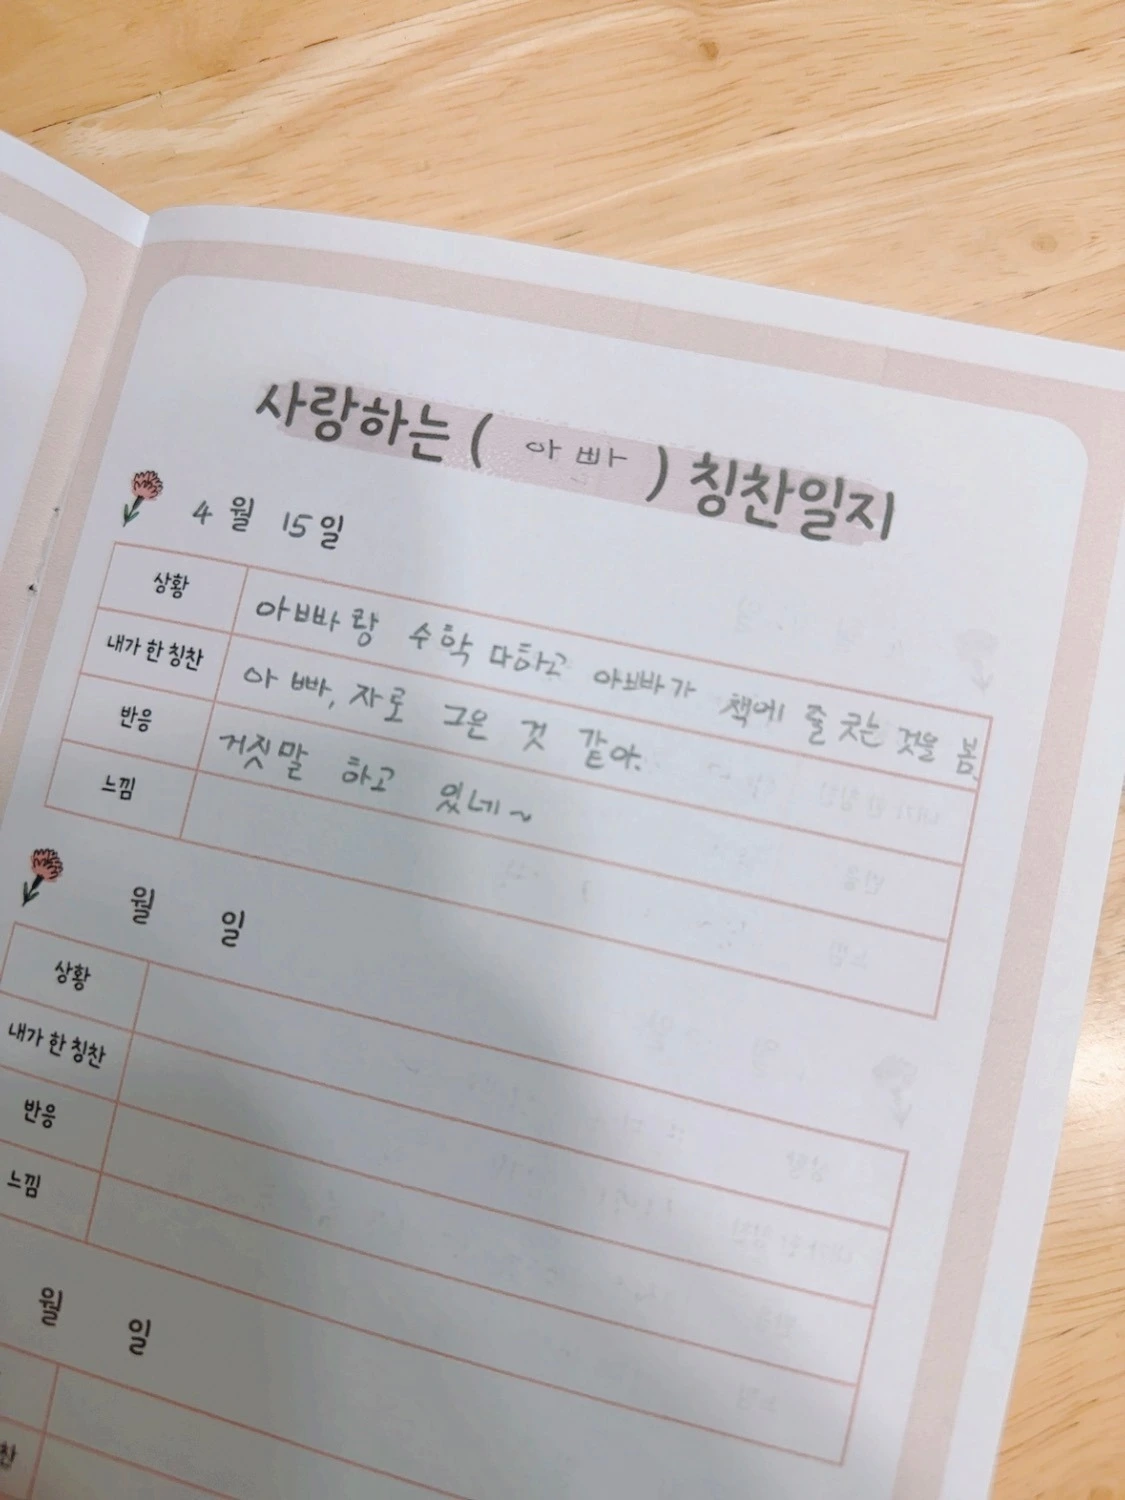 사랑하는 ( 아빠 ) 칭찬일지
4 월 15 일
상황 아빠랑 수학 다하고 아빠가 책에 줄 긋는 것을 봄.
내가 한 칭찬 아빠, 자로 그은 것 같아.
반응 거짓말 하고 있네~
느낌
월 일
상황
내가 한 칭찬
반응
느낌
월 일
찬